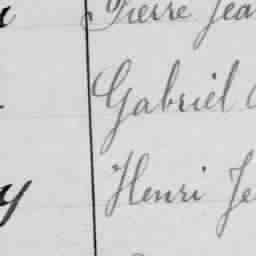 Pierre Jea
Gabriel
y Henri Je